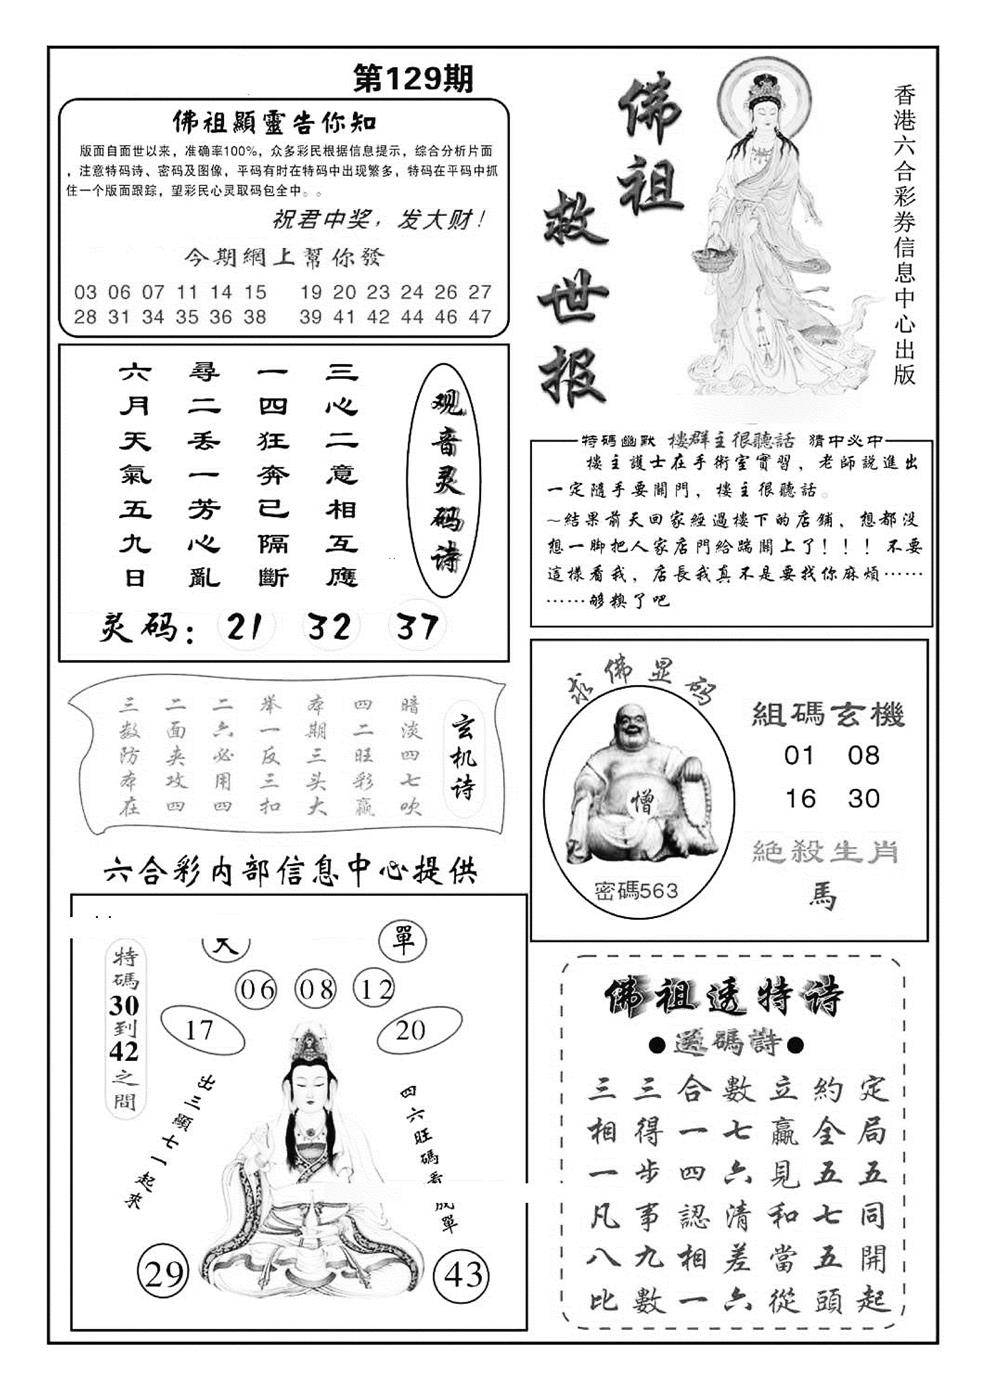 第129期
佛祖顯靈告你知
版面自面世以来，准确率100%，众多彩民根据信息提示，综合分析片面
，注意特码诗、密码及图像，平码有时在特码中出现繁多，特码在平码中抓
住一个版面跟踪，望彩民心灵取码包全中。。
祝君中奖，发大财！
今期網上幫你發
03 06 07 11 14 15 19 20 23 24 26 27
28 31 34 35 36 38 39 41 42 44 46 47
佛祖
救世报
香港六合彩券信息中心出版
观音灵码诗
三心二意相互應
一四狂奔已隔斷
尋二丢一芳心亂
六月天氣五九日
灵码：21 32 37
特碼幽默 樓群主很聽話 猜中必中
樓主護士在手術室實習，老師説進出
一定隨手要關門，樓主很聽話。
~结果前天回家經過樓下的店鋪，想都没
想一脚把人家店門給踹關上了！！！不要
這樣看我，店長我真不是要找你麻煩……
……够糗了吧
玄机诗
暗淡四七吹
四二旺彩贏
本期三头大
举一反三扣
二六必用四
二面夹攻四
三数防本在
六合彩内部信息中心提供
求佛显码
僧
密碼563
組碼玄機
01 08
16 30
絶殺生肖
馬
特碼30到42之間
大 單
06 08 12
17 20
出三顯七一起來
四六旺碼
單
29 43
佛祖透特诗
●送碼詩●
三三合數立約定
相得一七贏全局
一步四六見五五
凡事認清和七同
八九相差當五開
比數一六從頭起